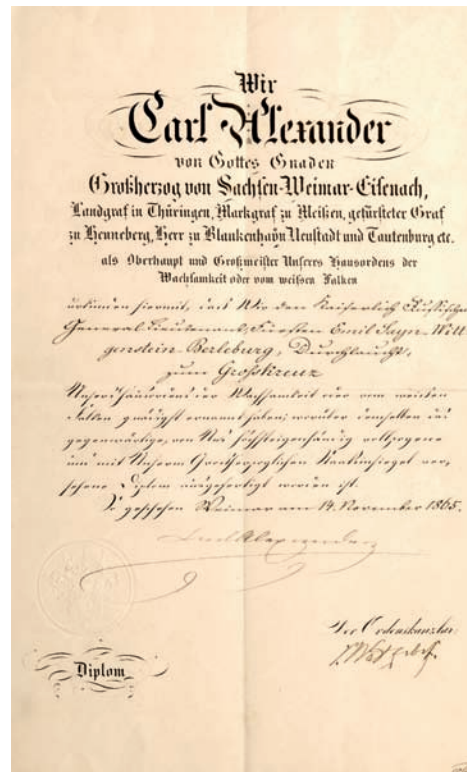 Wir
Carl Alexander
von Gottes Gnaden
Großherzog von Sachsen-Weimar-Eisenach,
Landgraf in Thüringen, Markgraf zu Meißen, gefürsteter Graf
zu Henneberg, Herr zu Blankenhayn Neustadt und Tautenburg etc.
als Oberhaupt und Großmeister Unseres Hausordens der
Wachsamkeit oder vom weißen Falken
urkunden hiermit, daß Wir den Kaiserlich Russischen
General-Lieutenant, Fürsten Emil Sayn-Witt
genstein-Berleburg, Durchlaucht,
zum Großkreuz
Unseres Hausordens der Wachsamkeit oder vom weißen
Falken gnädigst ernannt haben; worüber demselben das
gegenwärtige, von Uns höchsteigenhändig vollzogene
und mit Unserm Großherzoglichen Kanzleisiegel ver,
sehene Diplom ausgefertigt worden ist.
So geschehen Weimar am 14. November 1865.
Carl Alexander
Der Ordenskanzler:
Diplom